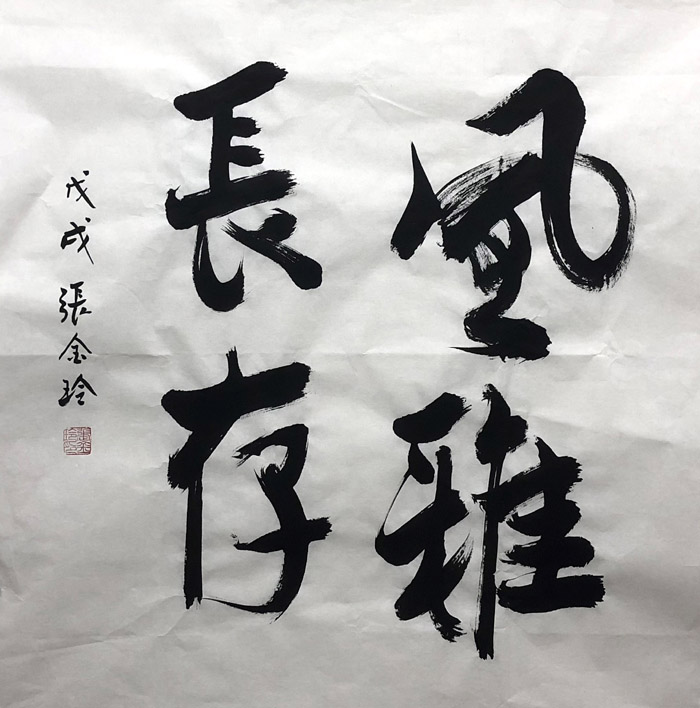 風雅
長存
戊戌 張金玲